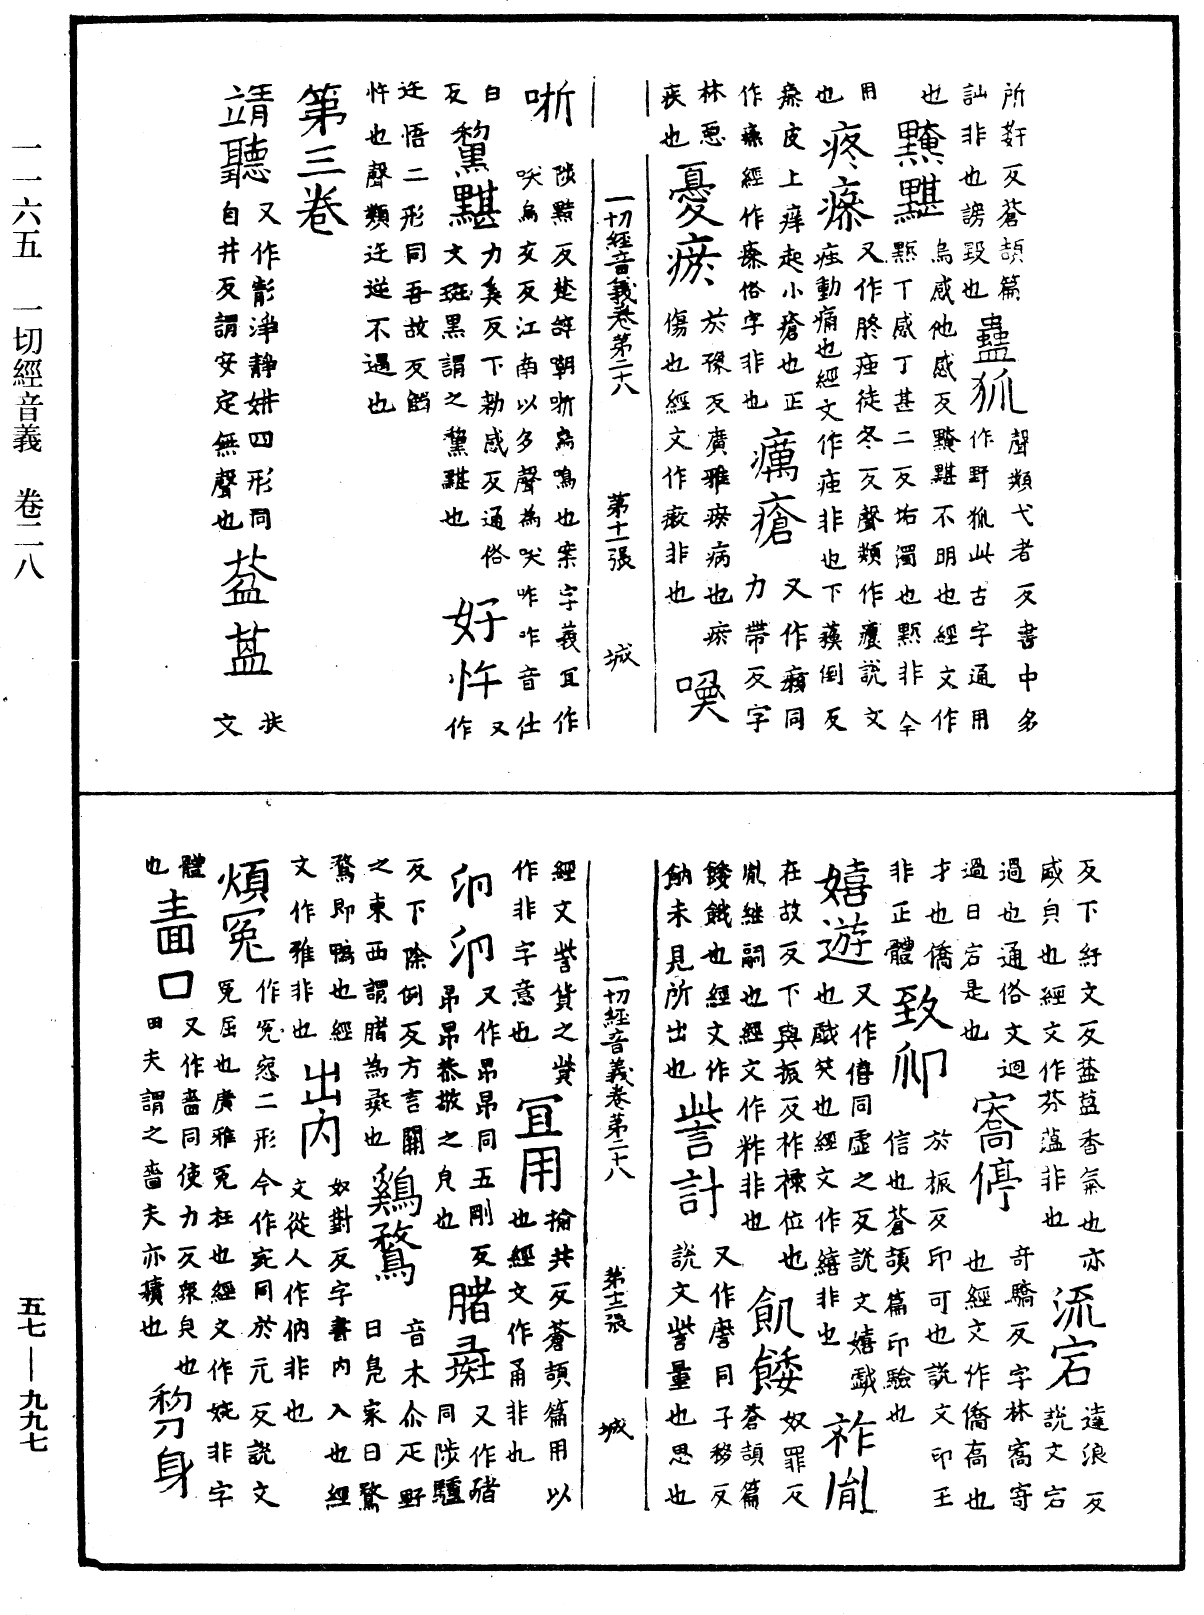 一一六五　一切經音義　卷二八
所姧反蒼頡篇
訕非也謗毀也
蠱狐
聲類弋者反書中多
作野狐此古字通用
也
黤黮
烏感他感反黤黮不明也經文作
黕丁感丁甚二反垢濁也黕非今
用
也
疼瘙
又作㾁痋徒冬反聲類作癑說文
痋動痛也經文作痋非也下蘓倒反
瘙皮上痒起小瘡也正
作瘙經作瘙俗字非也
癘瘡
又作癩同
力帶反字
林惡
疾也
憂瘀
於豫反廣雅瘀病也瘀
傷也經文作瘀非也
㗛
一切經音義卷第二十八　第十一張　城
哳
陟黠反楚辞嘲哳鳥鳴也案字義宜作
咲烏交反江南以多聲為咲咋咋音仕
白
反
黧黮
力奚反下勑感反通俗
文斑黑謂之黧黮也
好忤
又
作
迕悟二形同吾故反
忤也聲類迕逆不遇也
第三卷
靖聽
又作彰淨靜妌四形同
自井反謂安定無聲也
葐蒕
扶
文
反下紆文反葐蒕香氣也亦
盛皃也經文作芬蒕非也
流宕
達浪反
說文宕
過也通俗文迴
過曰宕是也
喬停
奇驕反字林喬寄
也經文作僑高也
才也僑
非正體
致印
於振反印可也說文印王
信也蒼頡篇印驗也
嬉遊
又作僖同虛之反說文嬉戲
也戲笑也經文作縖非也
祚胤
在故反下與振反祚禄位也
胤继嗣也經文作粋非也
飢餧
奴罪反
餧餓也經文作
餒未見所出也
訾計
又作㠿同子移反蒼頡篇
說文訾量也思也
一切經音義卷第二十八　第十二張　城
經文訾貨之貲
作非字意也
宜用
揄共反蒼頡篇用以
也經文作甬非也
泖泖
又作昂昂同五剛反
昂昂恭敬之皃也
又作豬
同陟驢
反下除倒反方言關
之東西謂豬為彘也
雞鶩
音木尒疋野
曰鳬家曰鶩
鶩即鴨也經
文作雅非也
出內
奴對反字書內入也經
文從人作㐻非也
煩冤
作寃怨二形今作宛同於元反說文
冤屈也廣雅冤枉也經文作婉非字
體
也
嗇口
又作嗇同使力反衆皃也
田夫謂之嗇夫亦積也
剺身
五七—九九七